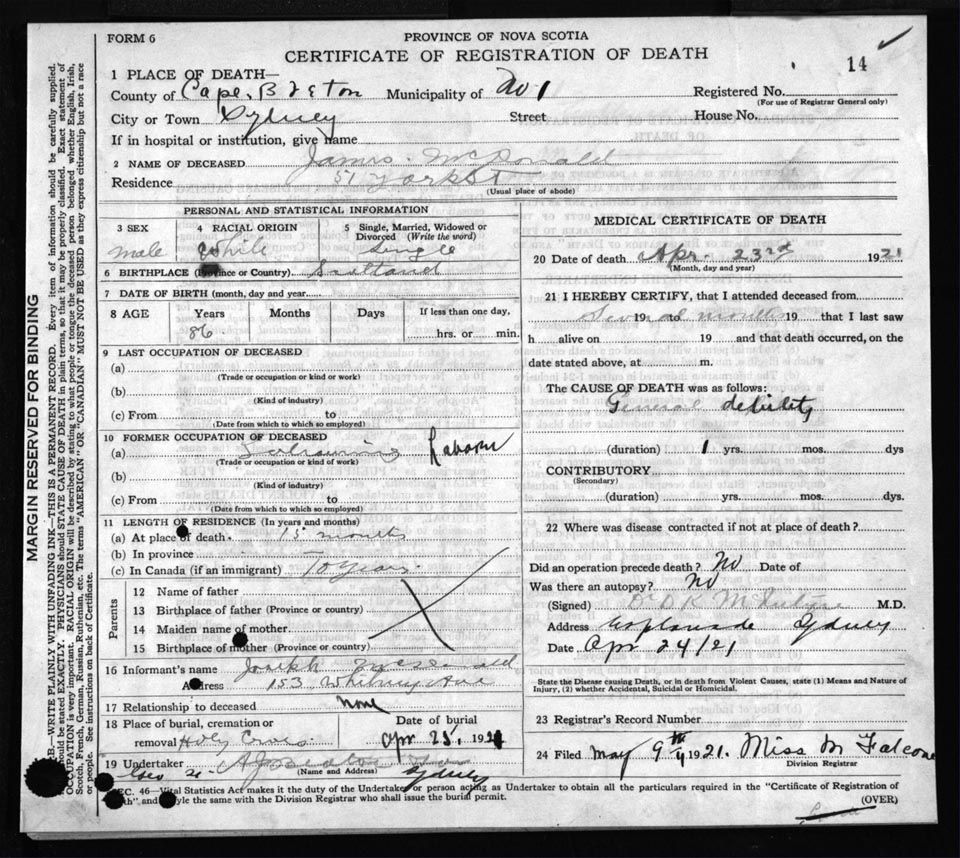 FORM 6
PROVINCE OF NOVA SCOTIA
CERTIFICATE OF REGISTRATION OF DEATH
14
1 PLACE OF DEATH—
County of Cape Breton Municipality of No 1 Registered No.
(For use of Registrar General only)
City or Town Sydney Street House No.
If in hospital or institution, give name
2 NAME OF DECEASED James McDonald
Residence 51 York St
(Usual place of abode)
PERSONAL AND STATISTICAL INFORMATION
3 SEX 4 RACIAL ORIGIN 5 Single, Married, Widowed or Divorced (Write the word)
male White Single
6 BIRTHPLACE (Province or Country) Scotland
7 DATE OF BIRTH (month, day and year)
8 AGE Years Months Days If less than one day,
86 hrs. or min.
9 LAST OCCUPATION OF DECEASED
(a)
(Trade or occupation or kind or work)
(b)
(Kind of industry)
(c) From to
(Date from which to which so employed)
10 FORMER OCCUPATION OF DECEASED
(a) Labourer
(Trade or occupation or kind of work)
(b)
(Kind of industry)
(c) From to
(Date from which to which so employed)
11 LENGTH OF RESIDENCE (In years and months)
(a) At place of death 15 months
(b) In province
(c) In Canada (if an immigrant) 70 years
Parents
12 Name of father
13 Birthplace of father (Province or country)
14 Maiden name of mother
15 Birthplace of mother (Province or country)
16 Informant's name Joseph
Address 153 Whitney Ave
17 Relationship to deceased none
18 Place of burial, cremation or Date of burial
removal Holy Cross Apr 25, 1921
19 Undertaker
(Name and Address) Sydney
MEDICAL CERTIFICATE OF DEATH
20 Date of death Apr. 23rd 1921
(Month, day and year)
21 I HEREBY CERTIFY, that I attended deceased from
Several months 19 to 19 that I last saw
h alive on 19 and that death occurred, on the
date stated above, at m.
The CAUSE OF DEATH was as follows:
General debility
(duration) 1 yrs. mos. dys
CONTRIBUTORY
(Secondary)
(duration) yrs. mos. dys.
22 Where was disease contracted if not at place of death?
Did an operation precede death? No Date of
Was there an autopsy? No
(Signed) Dr D K McIntyre M.D.
Address Esplanade Sydney
Date Apr 24/21
State the Disease causing Death, or in death from Violent Causes, state (1) Means and Nature of
Injury, (2) whether Accidental, Suicidal or Homicidal.
23 Registrar's Record Number
24 Filed May 9th 1921. Miss M Falcone
Division Registrar
SEC. 46—Vital Statistics Act makes it the duty of the Undertaker or person acting as Undertaker to obtain all the particulars required in the "Certificate of Registration of
Death" and to file the same with the Division Registrar who shall issue the burial permit.
(OVER)
MARGIN RESERVED FOR BINDING
N.B.—WRITE PLAINLY WITH UNFADING INK—THIS IS A PERMANENT RECORD. Every item of information should be carefully supplied.
AGE should be stated EXACTLY. PHYSICIANS should STATE CAUSE OF DEATH in plain terms, so that it may be properly classified. Exact statement of
OCCUPATION is very important. RACIAL ORIGIN will be described by stating to what people or tongue the deceased person belonged whether English, Irish,
Scotch, French, German, Russian, Ruthenian, etc. The terms "AMERICAN" OR "CANADIAN" MUST NOT BE USED as they express citizenship but not a race
or people. See instructions on back of Certificate.